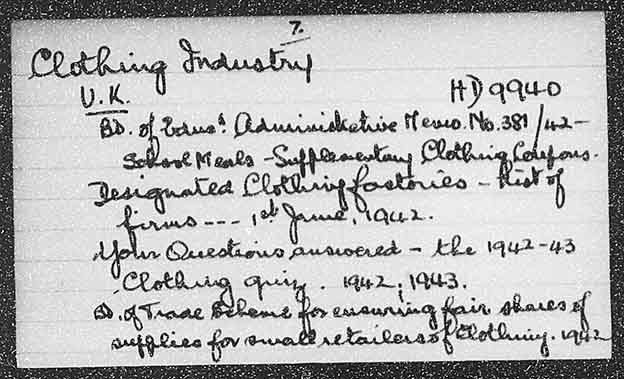 7.
Clothing Industry
U.K.
HD9940
Bd. of Educn. Administrative Memo. No. 381/42-
School Meals - Supplementary Clothing Coupons.
Designated Clothing factories - List of
firms --- 1st June, 1942.
Your Questions answered - the 1942-43
Clothing quiz. 1942, 1943.
Bd. of Trade Scheme for ensuring fair shares of
supplies for small retailers of Clothing. 1942